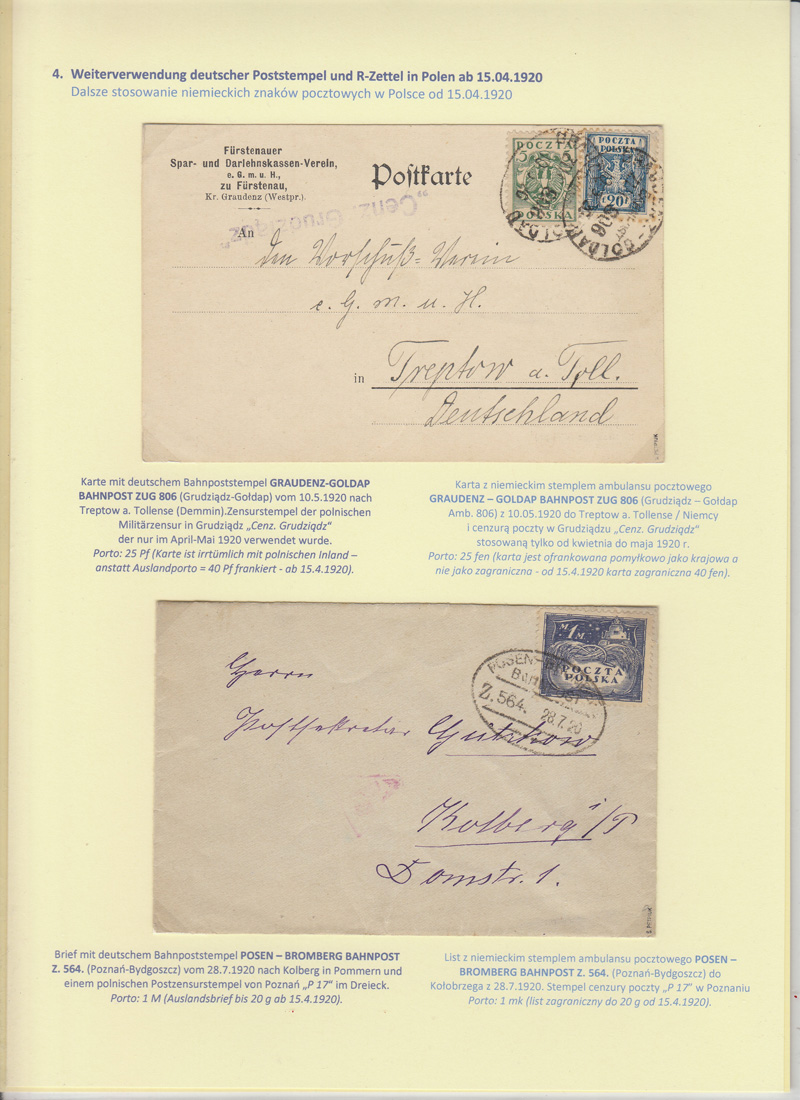 4. Weiterverwendung deutscher Poststempel und R-Zettel in Polen ab 15.04.1920
Dalsze stosowanie niemieckich znaków pocztowych w Polsce od 15.04.1920
Fürstenauer
Spar- und Darlehnskassen-Verein,
e. G. m. u. H.,
zu Fürstenau,
Kr. Graudenz (Westpr.).
Postkarte
POCZTA
5
POLSKA
POCZTA
POLSKA
20
806
GOLDAP
„Cenz. Grudziądz"
An
den Vorschuß-Verein
e. G. m. u. H.
in Treptow a. Toll.
Deutschland
Karte mit deutschem Bahnpoststempel GRAUDENZ-GOLDAP
BAHNPOST ZUG 806 (Grudziądz-Gołdap) vom 10.5.1920 nach
Treptow a. Tollense (Demmin).Zensurstempel der polnischen
Militärzensur in Grudziądz „Cenz. Grudziądz“
der nur im April-Mai 1920 verwendet wurde.
Porto: 25 Pf (Karte ist irrtümlich mit polnischen Inland –
anstatt Auslandporto = 40 Pf frankiert - ab 15.4.1920).
Karta z niemieckim stemplem ambulansu pocztowego
GRAUDENZ – GOLDAP BAHNPOST ZUG 806 (Grudziądz – Gołdap
Amb. 806) z 10.05.1920 do Treptow a. Tollense / Niemcy
i cenzurą poczty w Grudziądzu „Cenz. Grudziądz“
stosowaną tylko od kwietnia do maja 1920 r.
Porto: 25 fen (karta jest ofrankowana pomyłkowo jako krajowa a
nie jako zagraniczna - od 15.4.1920 karta zagraniczna 40 fen).
M 1 M
POCZTA
POLSKA
POSEN
Z. 564.
28.7.20
Herrn
Postsekretär Gutzkow
Kolberg i/P
Domstr. 1.
Brief mit deutschem Bahnpoststempel POSEN – BROMBERG BAHNPOST
Z. 564. (Poznań-Bydgoszcz) vom 28.7.1920 nach Kolberg in Pommern und
einem polnischen Postzensurstempel von Poznań „P 17“ im Dreieck.
Porto: 1 M (Auslandsbrief bis 20 g ab 15.4.1920).
List z niemieckim stemplem ambulansu pocztowego POSEN –
BROMBERG BAHNPOST Z. 564. (Poznań-Bydgoszcz) do
Kołobrzega z 28.7.1920. Stempel cenzury poczty „P 17“ w Poznaniu
Porto: 1 mk (list zagraniczny do 20 g od 15.4.1920).